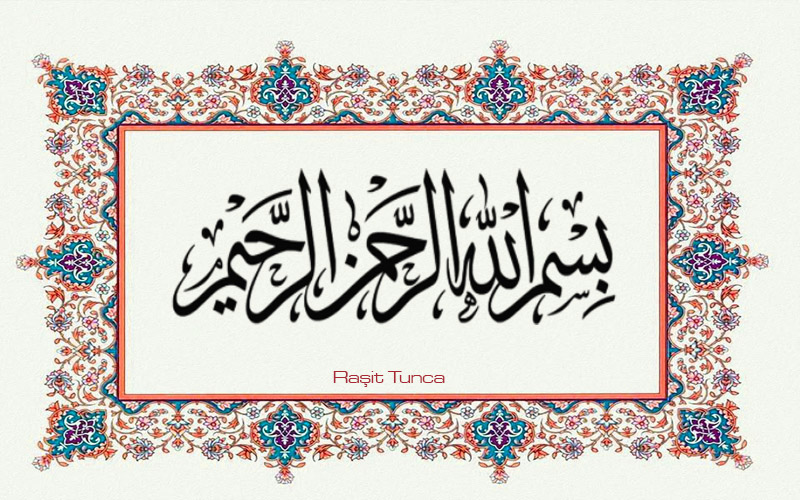 بِسْمِ اللهِ الرَّحْمٰنِ الرَّحِيْمِ
Raşit Tunca